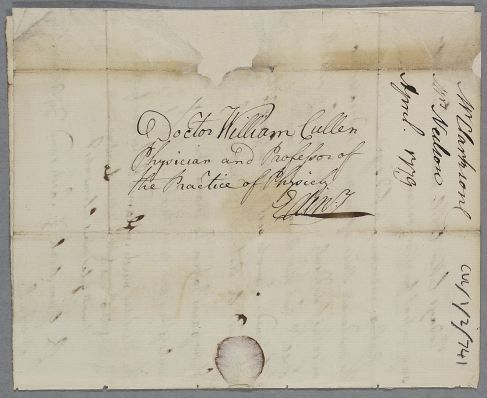 Doctor William Cullen
Physician and Professor of
the Practice of Physick
Edinr
Mr
Mr Neilson
April 1779
CUL/1/2/741